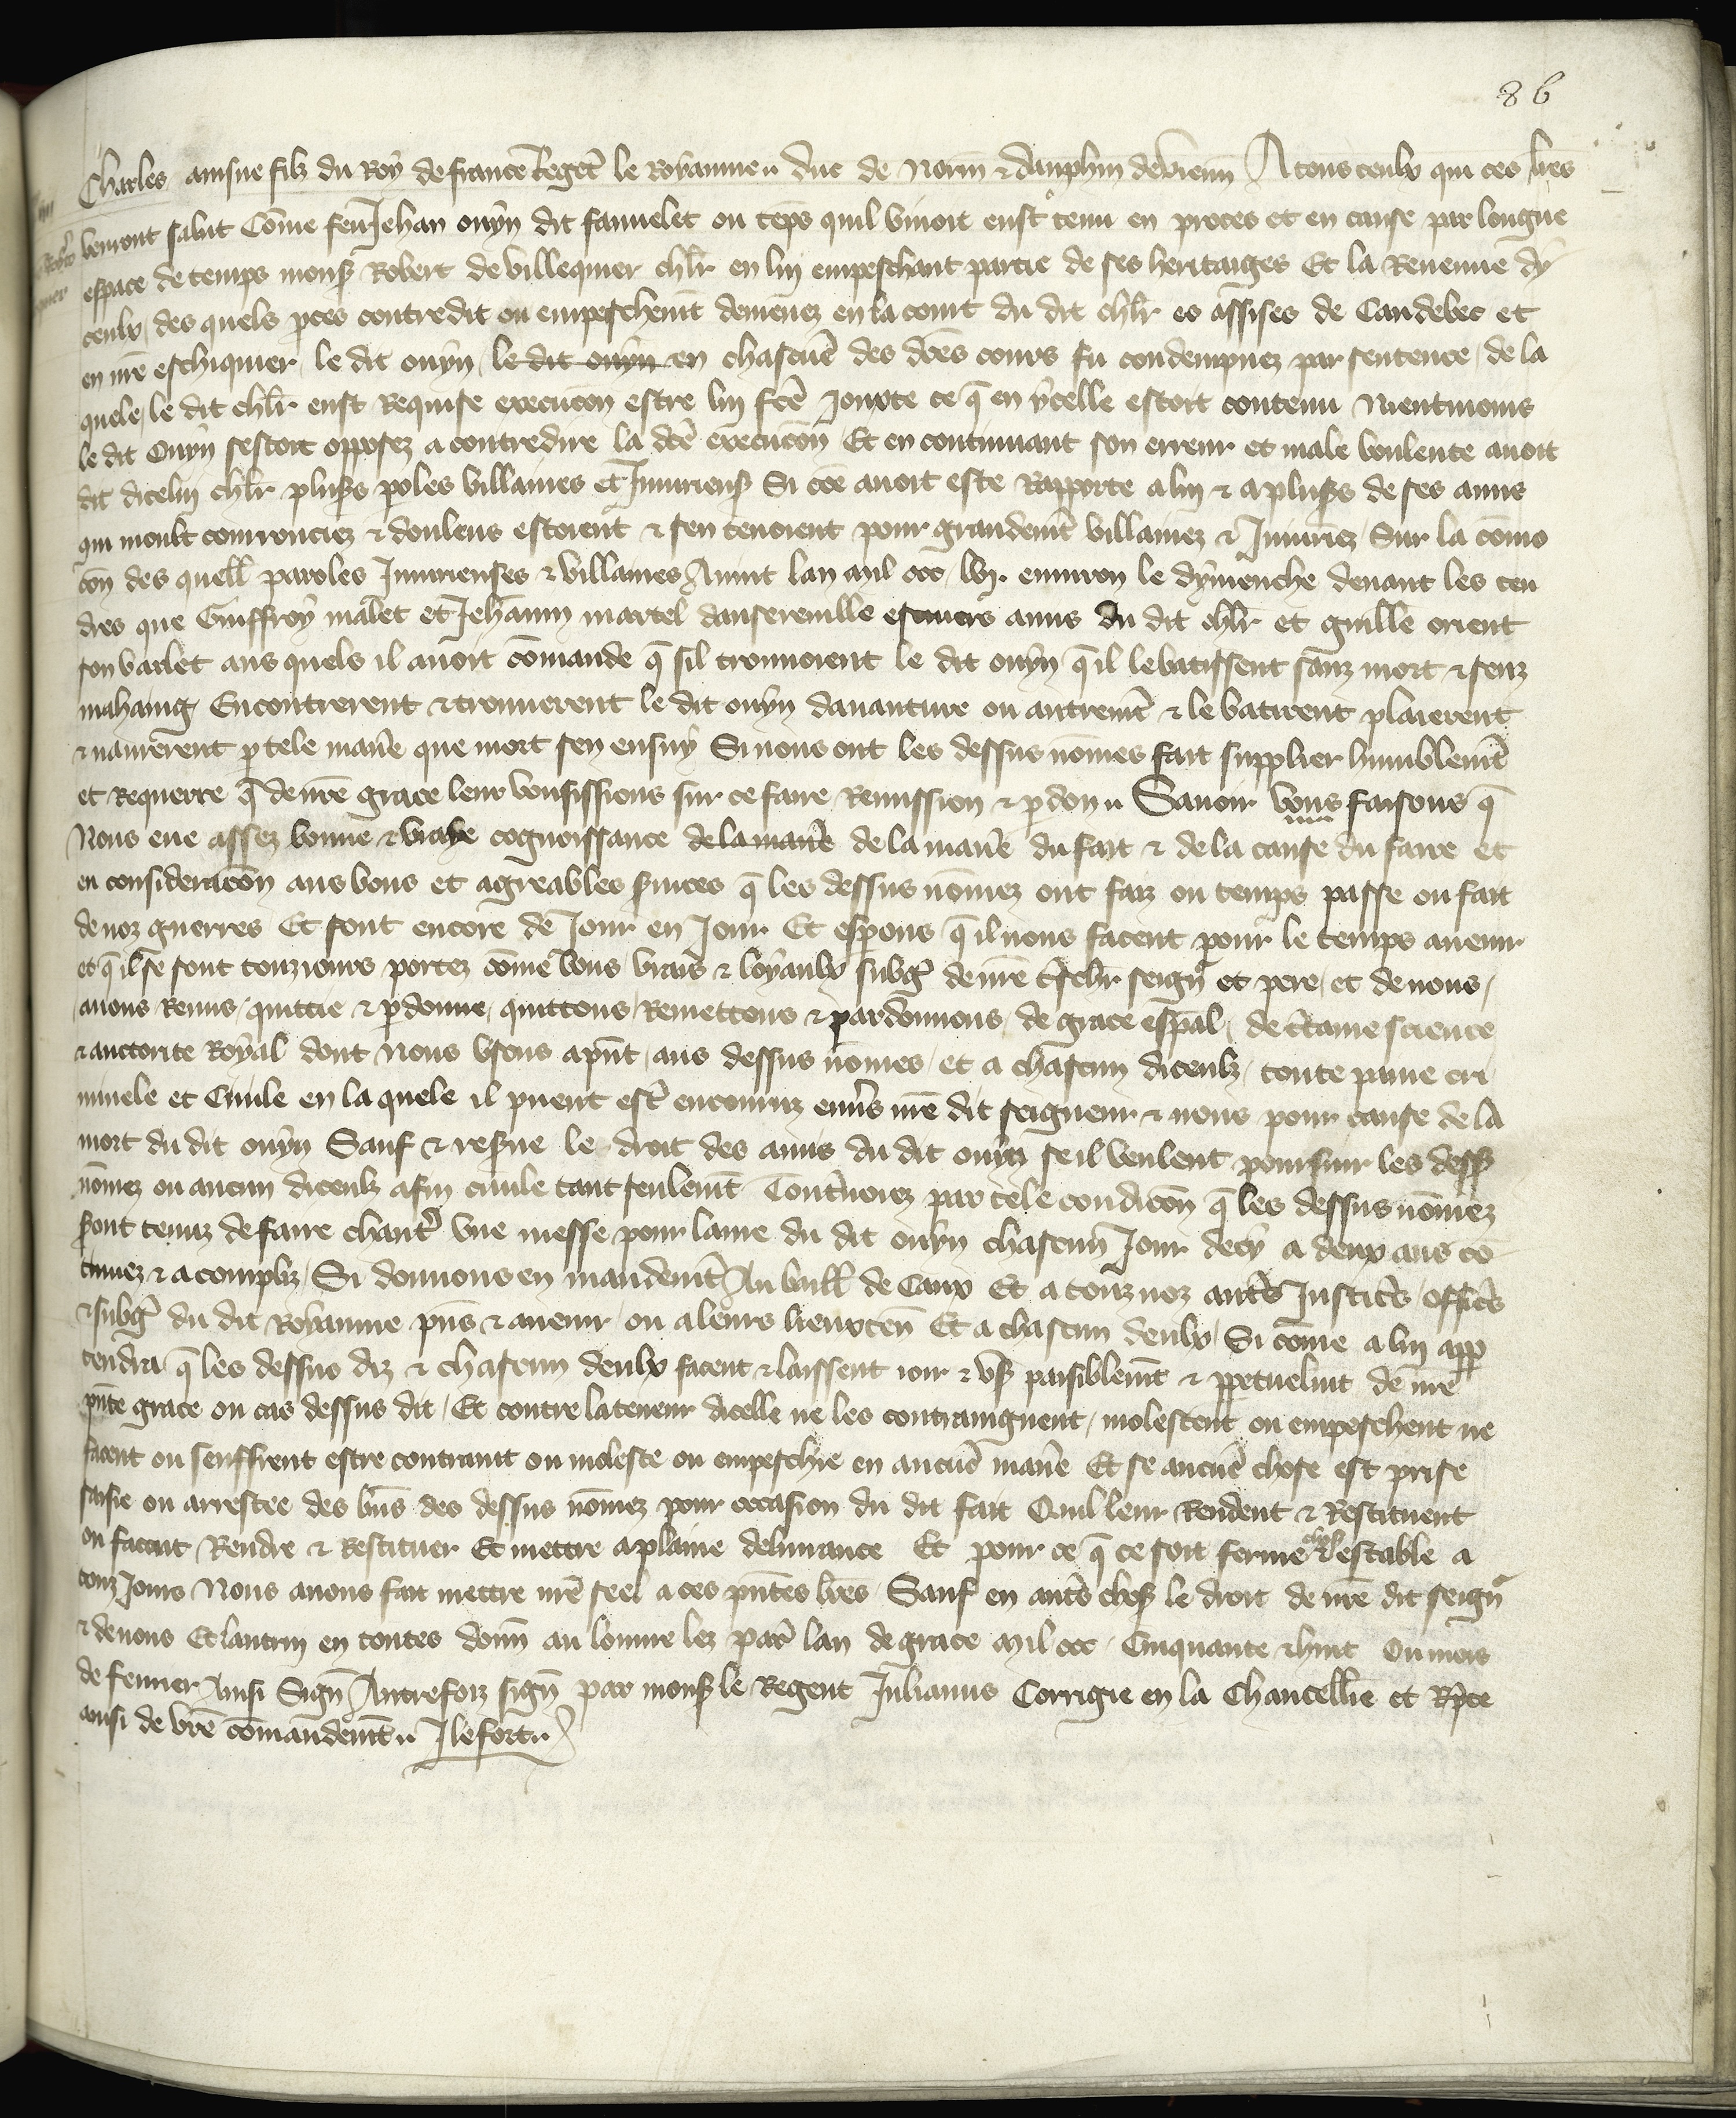 86
Charles ainsne filz du Roy de france Regēt le Royaume duc de Norm̄ & dauphin de vienn̄ A tous ceulx qui ces lr̄es
verront salut Cōme feu Jehan ouyn dit fauuelet ou tēps quil viuoit eust tenu en proces et en cause par longue
espace de temps mons̄ Robert de villequier chl̄r en lui empeschant partie de ses heritaiges Et la Reuenue dy
ceulx des quels ꝓces contredit ou empeschemt̄ demenez en la court du dit chl̄r es assises de Caudebec et
en nr̄e eschiquier le dit ouyn le dit ouyn en chascune des dc̄es cours fu condempnez par sentence de la
quele le dit chl̄r eust Requise execucōn estre lui fc̄e Jouxte ce q̄ en ycelle estoit contenu Nientmoins
le dit Ouyn sestoit opposez a contredire la dc̄e execucōn Et en continuant son erreur et male voulente auoit
dit dicelui chl̄r plus̄s ꝑoles villaines et Jniurieus̄ Si cōe auoit este Rapporte a lui & a plus̄s de ses amis
qui moult courrouciez & doulens estoient & sen tenoient pour grandemt̄ villainez & Jniuriez Sur la cōmo
cōn des quell̄ paroles Jniurieuses & villaines Auint lan mil ccc lvj. enuiron le dymenche deuant les cen
dres que Guiffroy malet et Jehānin martel danserenille escuiers amis du dit chl̄r et guille orient
son varlet aus quels il auoit cōmande q̄ sil trouuoient le dit ouyn q̄ il le batissent sanz mort & senz
mahaing Encontrerent & trouuerent le dit ouyn dauanture ou autremt̄ & le batirent plaierent
& naurerent ꝑ tele manie̅ que mort sen ensuy Si nous ont les dessus nōmes fait supplier humblemt̄
et Requerre q̄ de nr̄e grace leur vousissions sur ce faire Remission & ꝑdon Sauoir vous faisons q̄
Nous eue assez bonne & vraye cognoissance de la manie̅ de la manie̅ du fait & de la cause du faire et
en consideracōn aus bons et agreables ẜuices q̄ les dessus nōmez ont faiz ou temps passe ou fait
de noz guerres Et font encore de Jour en Jour Et espōns q̄ il nous facent pour le temps auenir
et q̄ il se sont touziours portez cōme bons vrais & loyaulx subgez de nr̄e t̄schr̄ seignr̄ et pere et de nous
auons Remis quittie & ꝑdonne quittons Remettons & pardonnons de grace esp̄al de c̄taine science
& auctorite Royal dont Nous vsons apn̄t aus dessus nōmes et a chascun diceulz toute paine cri
minele et Ciuile en la quele il puent est̄ encouruz enu̅s nr̄e dit seigneur & nous pour cause de la
mort du dit ouyn Sauf & res̄ue le droit des amis du dit ouyn se il veulent poursuir les dess̄
nōmez ou aucun diceulz afin ciuile tant seulemt̄ Tout̄uoiez par tele condicōn q̄ les dessus nōmez
ẜont tenuz de faire chant̄ vne messe pour lame du dit ouyn chascun Jour decy a deux ans cō
tinuez & acompliz Si donnons en mandemt̄ Au baill̄ de Caux Et a touz noz autr̄s Justic̄s offic̄s
& subgez du dit Royaume pn̄s & auenir ou a leurs lieuxten̄ Et a chascun deulx Si cōme a lui app̄
tendra q̄ les dessus diz & chascun deulx facent & laissent ioir & vs̄ paisiblemt̄ & ꝑpetuelmt̄ de nr̄e
pn̄te grace ou cas dessus dit Et contre la teneur dicelle ne les contraignent molestent ou empeschent ne
facent ou seuffrent estre contraint ou moleste ou empeschie en aucūe manie̅ Et se aucūe chose est prise
saisie ou arrestee des bn̄s des dessus nōmez pour occasion du dit fait Quil leur Rendent & Restituent
ou facent Rendre & Restituer Et mettre a plaine deliurance Et pour ce q̄ ce soit ferme chose & estable a
touz Jours Nous auons fait mettre nr̄e seel a ces pn̄tes lr̄es Sauf en autr̄s choses̄ le droit de nr̄e dit seignr̄
& de nous Et lautrui en toutes donn̄ au louure lez par̄ lan de grace mil ccc Cinquante & huit Ou mois
de feurier Ainsi Sign̄ Autrefoiz sign̄ par mons̄ le Regent Julianus Corrigie en la Chancellie̅ et Rp̄te
ainsi de vr̄e cōmandemt̄ J le fort